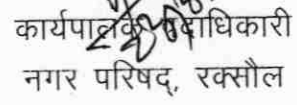 कार्यपालक पदाधिकारी
नगर परिषद्, रक्सौल